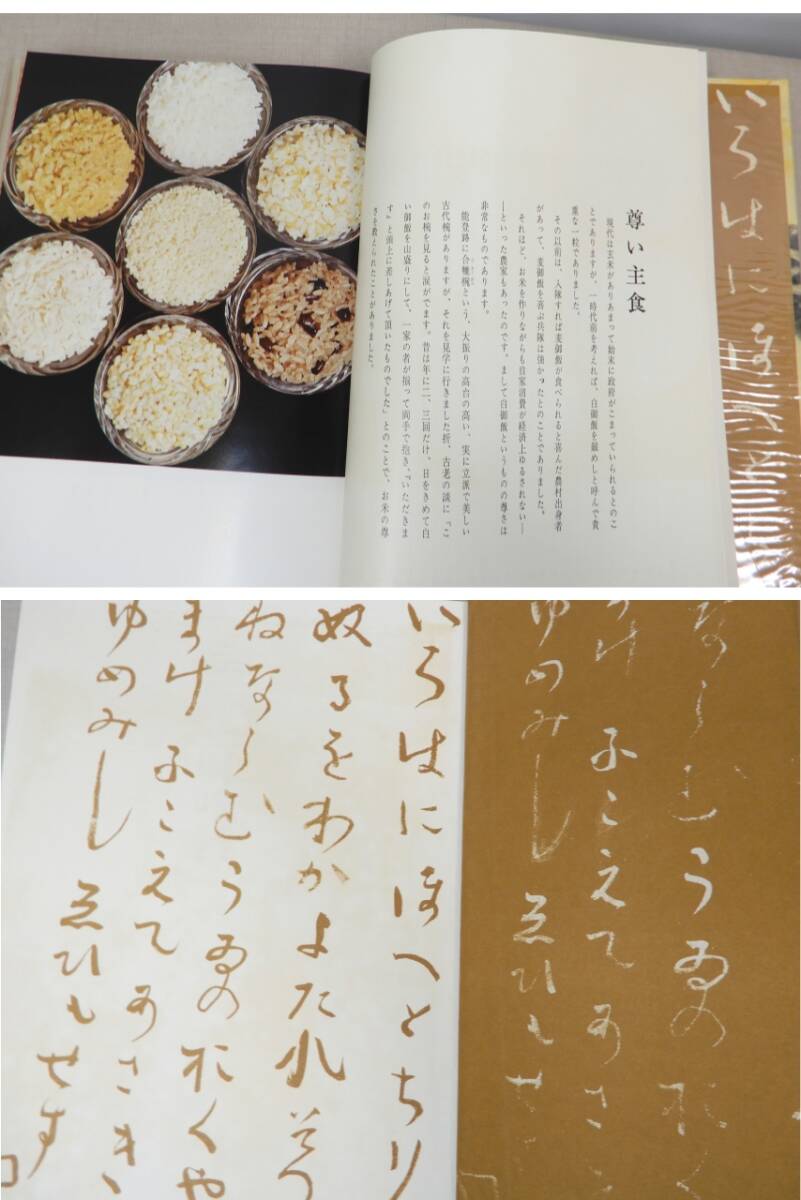 尊い主食
現代は玄米がありあまって始末に政府がこまっていられるとのこ
とでありますが、一時代前を考えれば、白御飯を銀めしと呼んで貴
重な一粒でありました。
その以前は、入隊すれば麦御飯が食べられると喜んだ農村出身者
があって、麦御飯を喜ぶ兵隊は強かったとのことでありました。
それほど、お米を作りながらも自家消費が経済上ゆるされない―
―といった農家もあったのです。まして白御飯というものの尊さは
非常なものであります。
能登路に合鹿椀という、大振りの高台の高い、実に立派で美しい
古代椀がありますが、それを見学に行きました折、古老の談に「こ
のお椀を見ると涙がでます。昔は年に二、三回だけ、日をきめて白
い御飯を山盛りにして、一家の者が揃って両手で抱き、『いただきま
す』と頭上に差しあげて頂いたものでした」とのことで、お米の尊
さを教えられたことがありました。
いろはにほへと
いろはにほへとちり
ぬるをわかよたれそつ
ねならむうゐのおくや
まけふこえてあさき
ゆめみしゑひもせす
ならむうゐのおく
けふこえてあさ
ゆめみしゑひもせ